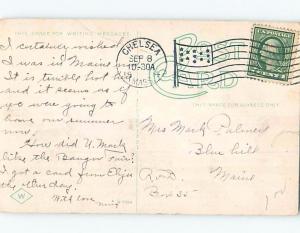 THIS SPACE FOR WRITING MESSAGES
POST
CARD
CHELSEA
SEP 8
10-30A
I certainly wished
I was in Maine
It is terrible hot
and it seems as if
we were going to
have our summer
now.
How did U. Mark
like the Bangor Fair?
I got a card from
the other day.
With love
THIS SPACE FOR ADDRESS ONLY
Mrs Mark Palmer
Blue hill
Maine
Box 35
W